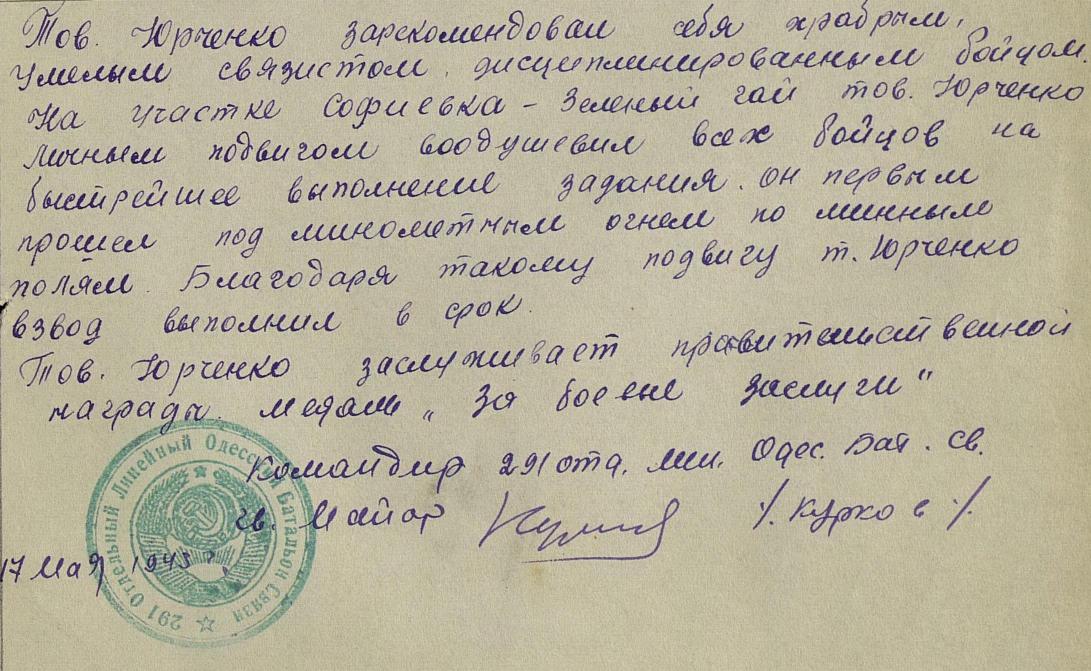 Тов. Юрченко зарекомендовал себя храбрым,
умелым связистом, дисциплинированным бойцом.
На участке Софиевка – Зеленый гай тов. Юрченко
личным подвигом воодушевил всех бойцов на
быстрейшее выполнение задания. он первым
прошел под минометным огнем по минным
полям. Благодаря такому подвигу т. Юрченко
взвод выполнил в срок.
Тов. Юрченко заслуживает правительственной
награды медали „За боевые заслуги"
Командир 291 отд. лин. Одес. Бат. св.
гв. Майор /. Курков /.
17 Мая 1945 г.
291 Отдельный Линейный Одесский Батальон Связи